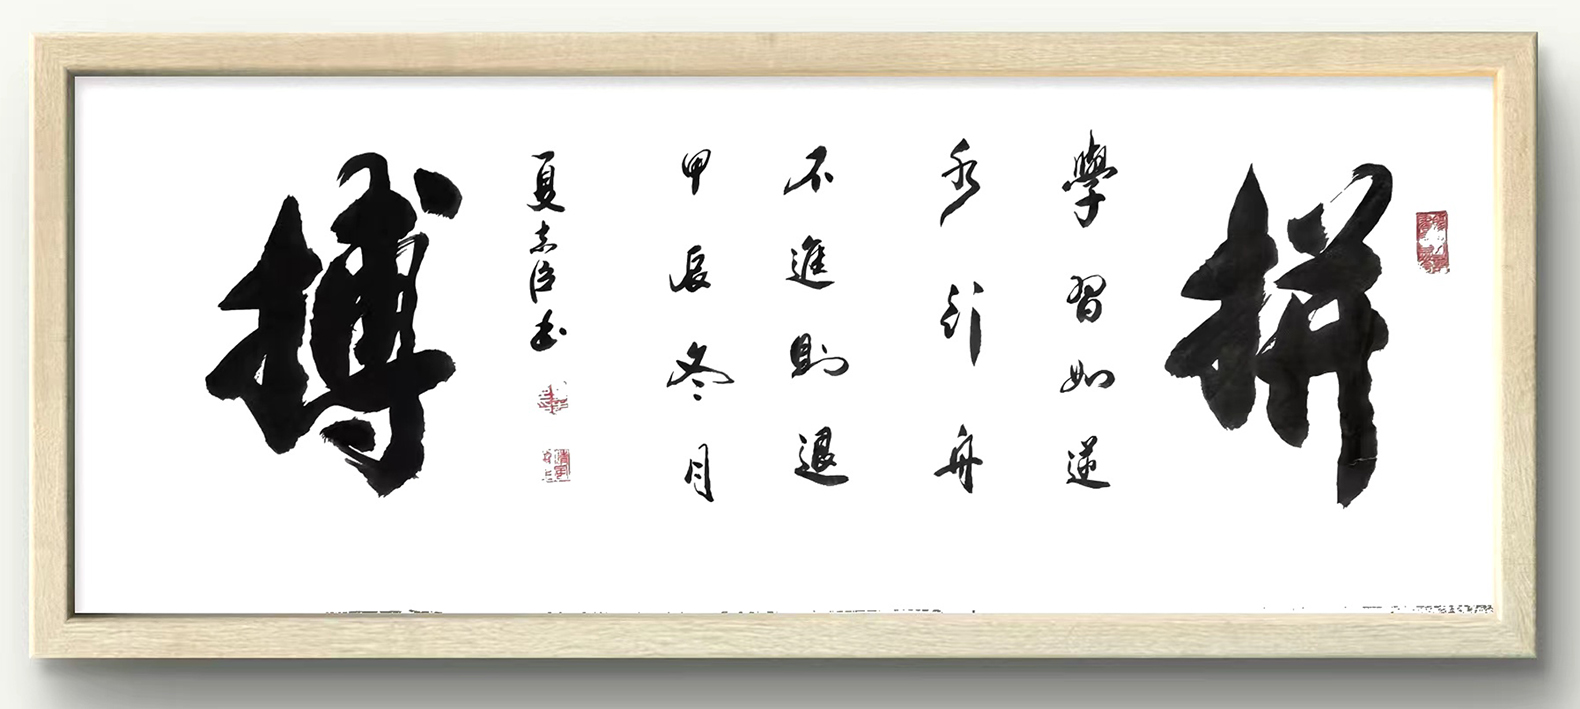 拼
學習如逆
水行舟
不進則退
甲辰冬月
夏志臣书
搏